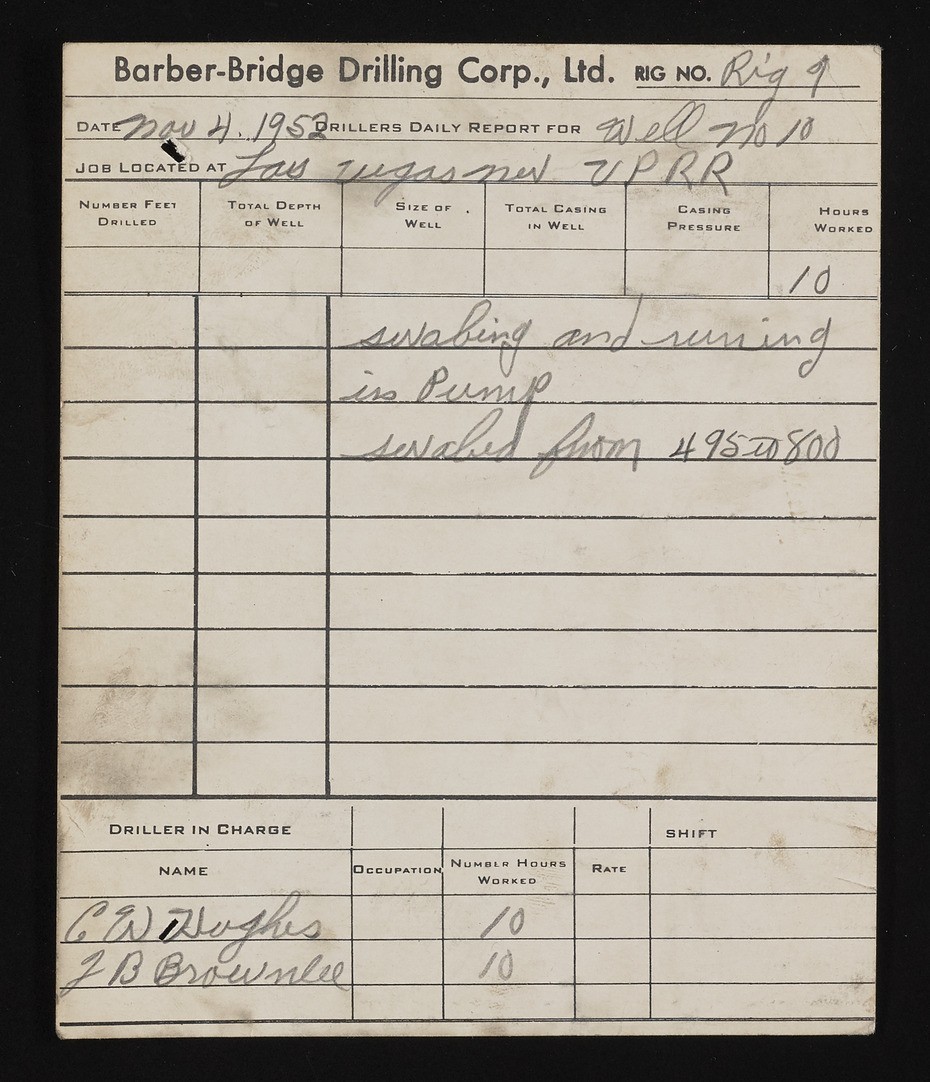 Barber-Bridge Drilling Corp., Ltd. RIG NO. Rig 9
DATE Nov 4. 1952 DRILLERS DAILY REPORT FOR Well No 10
JOB LOCATED AT Las vegas nev UPRR
NUMBER FEET DRILLED TOTAL DEPTH OF WELL SIZE OF WELL TOTAL CASING IN WELL CASING PRESSURE HOURS WORKED
10
swabing and runing
in Pump
swabed from 495 to 800
DRILLER IN CHARGE SHIFT
NAME OCCUPATION NUMBER HOURS WORKED RATE
C W Hughes 10
J B Brownlee 10